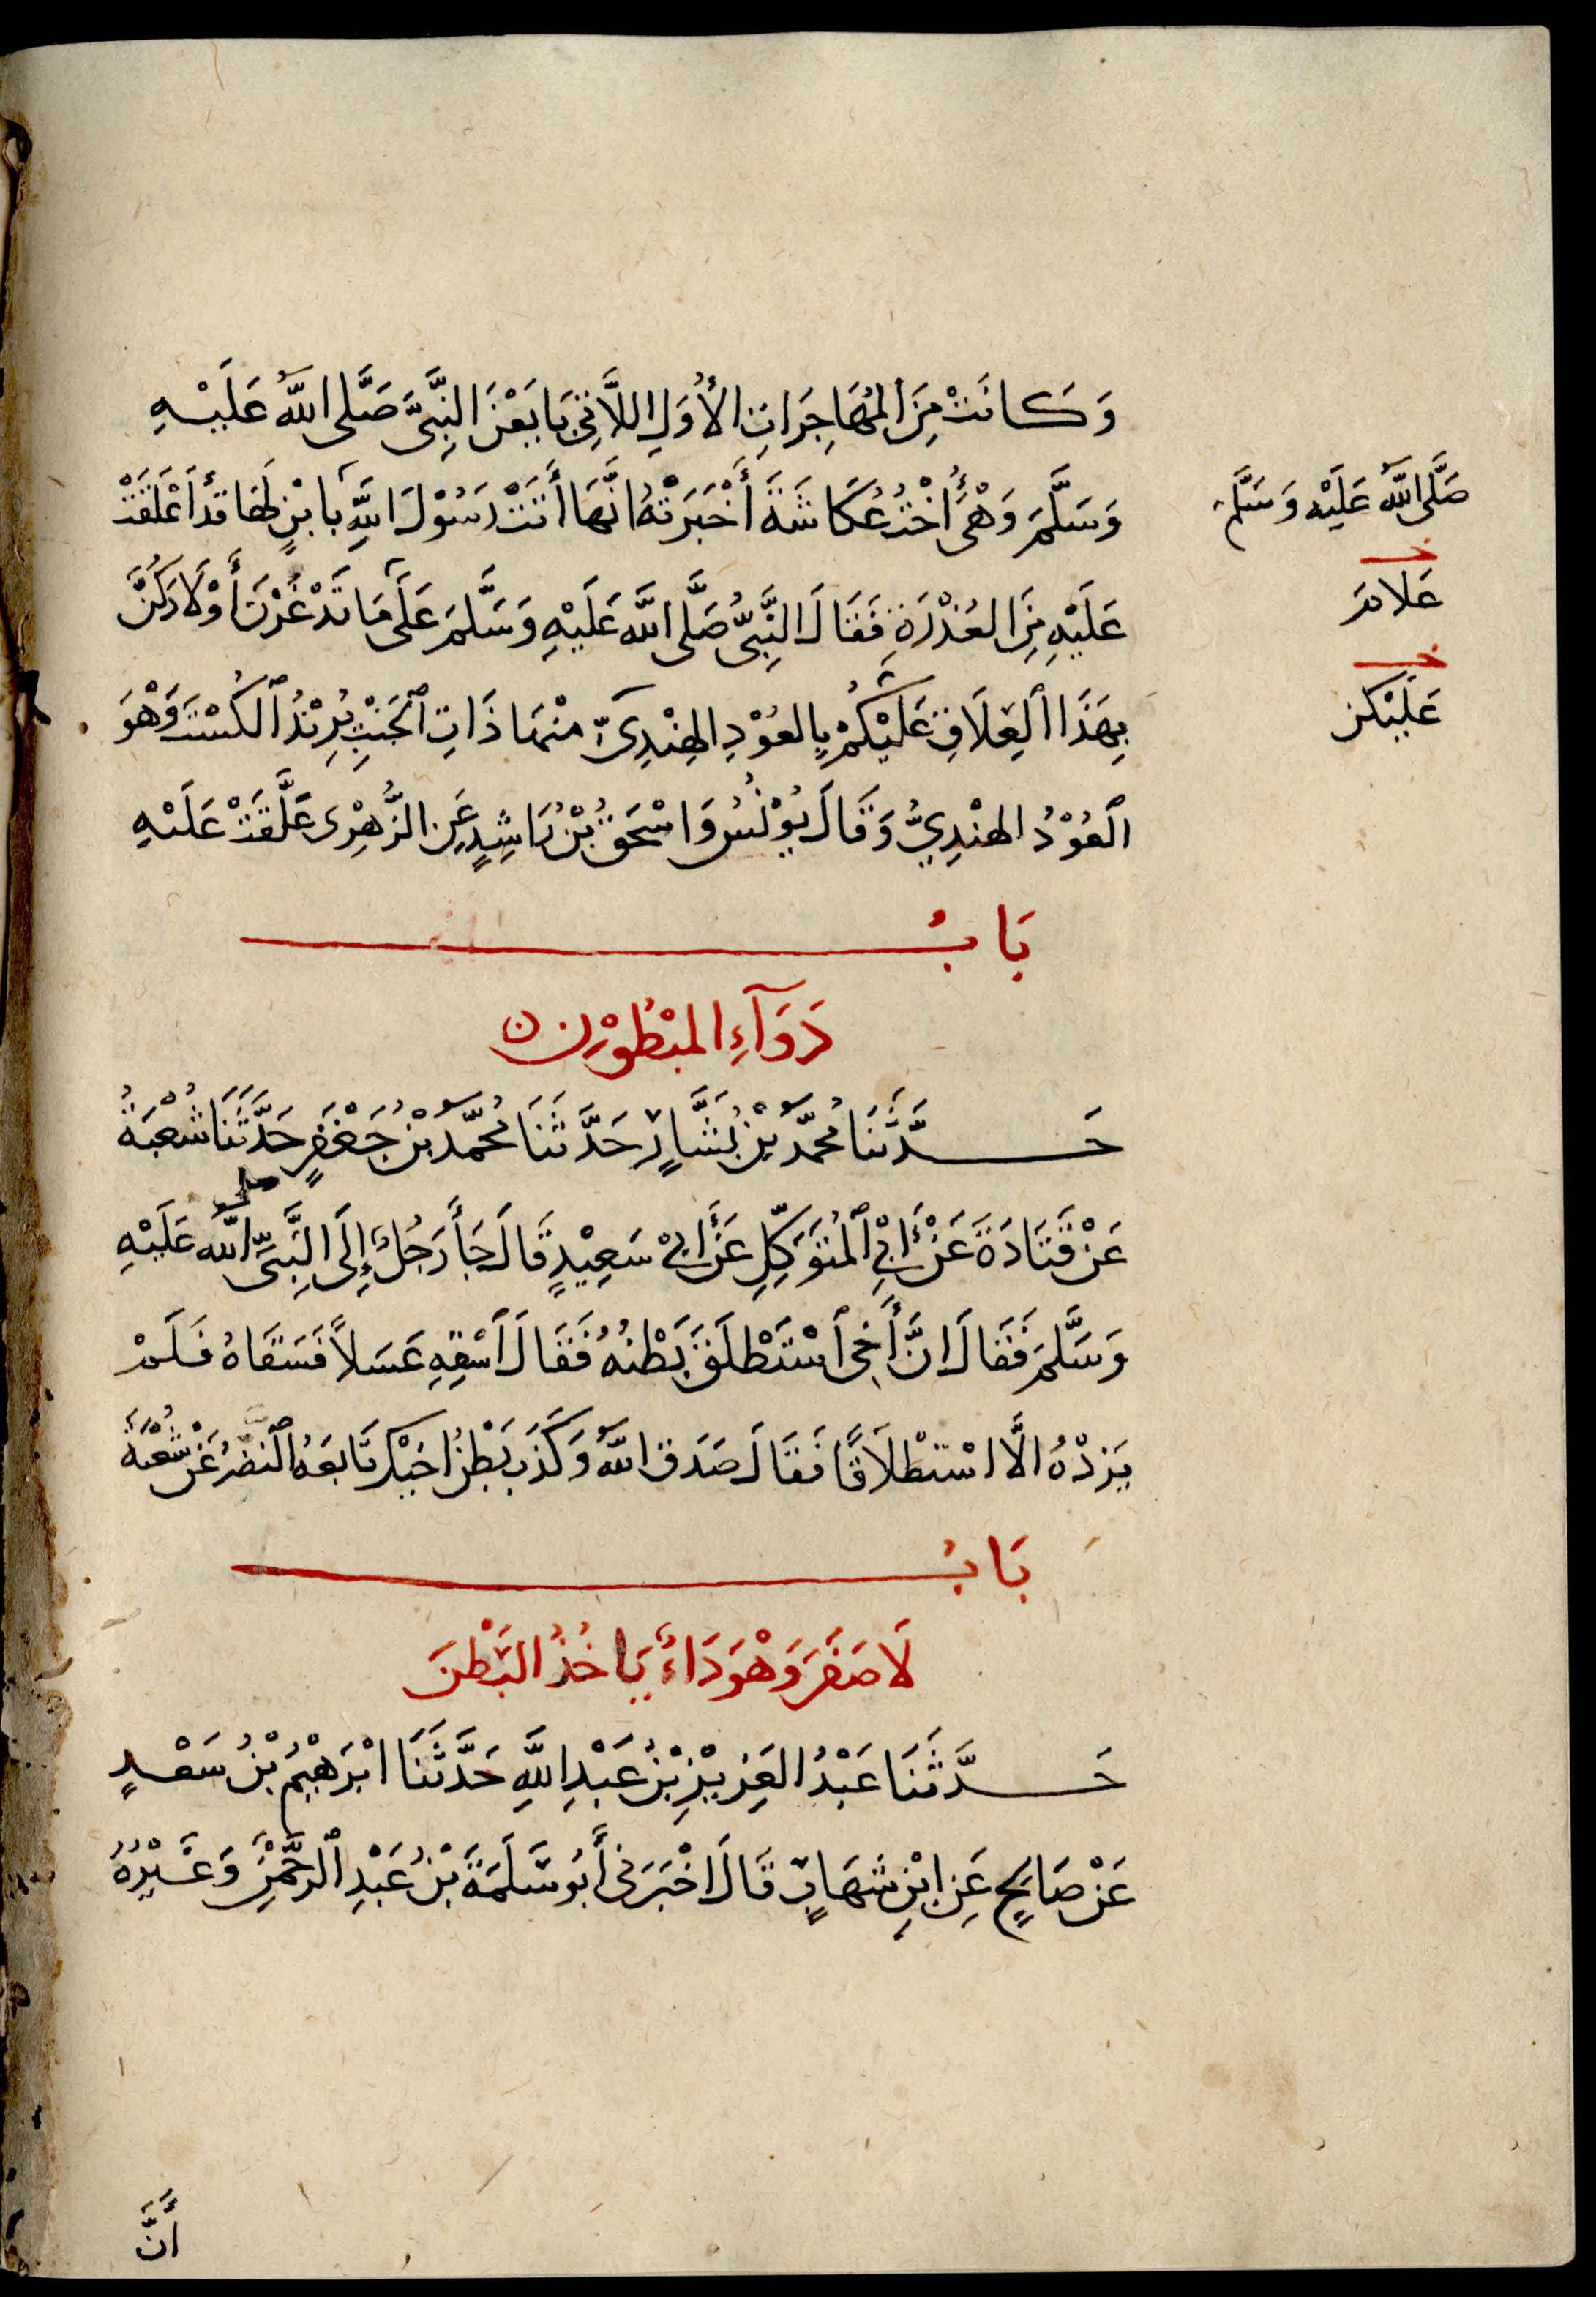 وَكانَتْ مِنَ المُهَاجِرَاتِ الأُوَلِ اللَّاتِي بَايَعْنَ النَّبِيَّ صَلَّى اللَّهُ عَلَيْهِ
وَسَلَّمَ وَهْىَ أُخْتُ عُكَاشَةَ أَخْبَرَتْهُ انَّهَا أَتَتْ رَسُوْلَ اللَّهِ بِابْنٍ لَهَا قَدْ أَعْلَقَتْ
صَلَّى اللَّهُ عَلَيْهِ وَسَلَّمَ
عَلَيْهِ مِنَ العُذْرَةِ فَقَالَ النَّبِيُّ صَلَّى اللَّه عَلَيْهِ وَسَلَّمَ عَلَى مَا تَدْغَرْنَ أَوْلَادَكُنَّ
خـ
عَلَامَ
بِهَذَا الْعِلَاقِ عَلَيْكُمْ بِالعُوْدِ الهِنْدِىِّ مِنْهَا ذَاتِ الْجَنْبِ يُرِيْدُ الْكُسْتَ وَهْوَ
خـ
عَلَيْكُنَّ
الْعُوْدُ الهِنْدِيُّ وَقَالَ يُوْنُسُ وَاسْحَقُ بْنُ رَاشِدٍ عَنِ الزُّهْرِى عَلَّقَتْ عَلَيْهِ
بَابُ
دَوَآءِ المَبْطُوْنِ ن
حَدَّثَنَا مُحَمَّدُ بْنُ بَشَّارٍ حَدَّثَنَا مُحَمَّدُ بْنُ جَعْفَرٍ حَدَّثَنَا شُعْبَةُ
عَنْ قَتَادَةَ عَنْ أَبِي الْمُتَوَكِّلِ عَنْ أَبِيْ سَعِيْدٍ قَالَ جَاْءَ رَجُلٌ إِلَى النَّبِيِّ صلى اللَّه عَلَيْهِ
وَسَلَّمَ فَقَالَ انَّ أَخِى اسْتَطْلَقَ بَطْنُهُ فَقَالَ اسْقِهِ عَسَلاً فَسَقَاهُ فَلَمْ
يَزِدْهُ الَّا اسْتِطْلَاقًا فَقَالَ صَدَقَ اللَّهُ وَكَذَبَ بَطْنُ اخِيْكَ تَابَعَهُ النَّضْرُ عَنْ شُعْبَةَ
بَابُ
لَا صَفَرَ وَهْوَ دَاءٌ يَاخُذُ البَطْنَ
حَدَّثَنَا عَبْدُ العَزِيْزِ بْنُ عَبْدِ اللَّهِ حَدَّثَنَا ابْرَهِيْمُ بْنُ سَعْدٍ
عَنْ صَالِحٍ عَنِ ابْنِ شِهَابٍ قَالَ اخْبَرَنِى أَبُو سَلَمَةَ بْنُ عَبْدِ الرَّحْمٰنِ وَغَيْرُهُ
أَنَّ